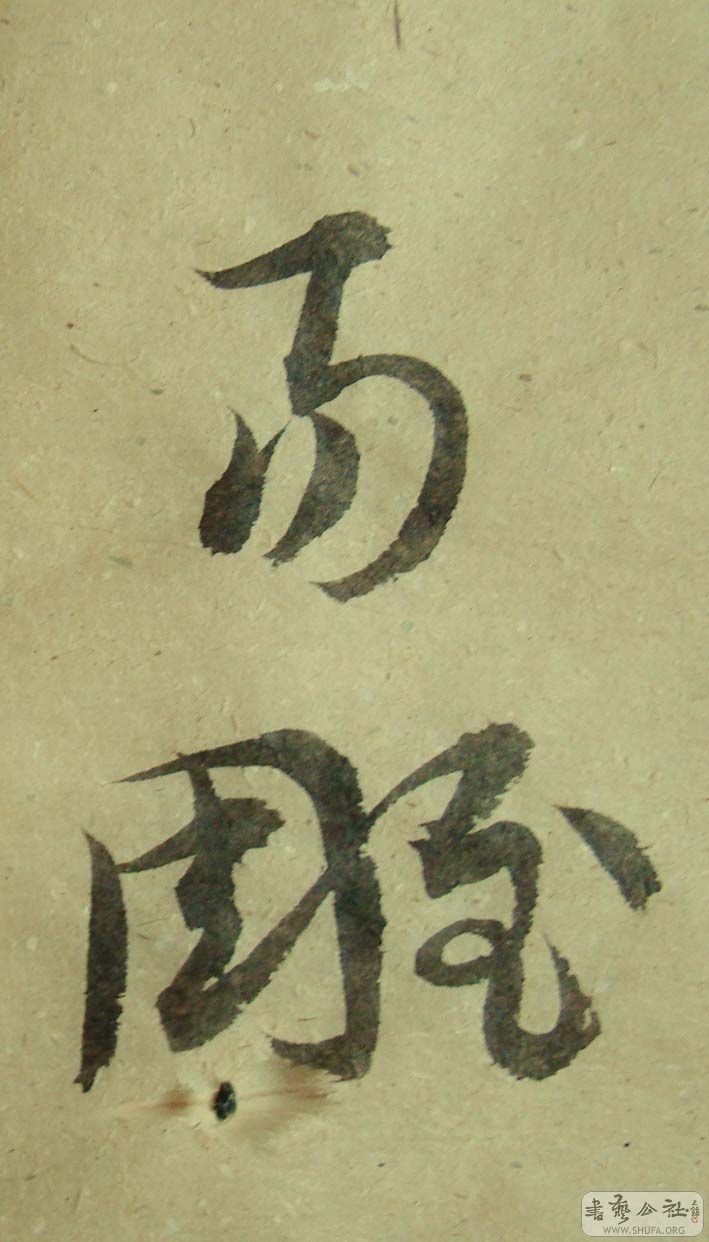 易雕
書藝公社
WWW.SHUFA.ORG